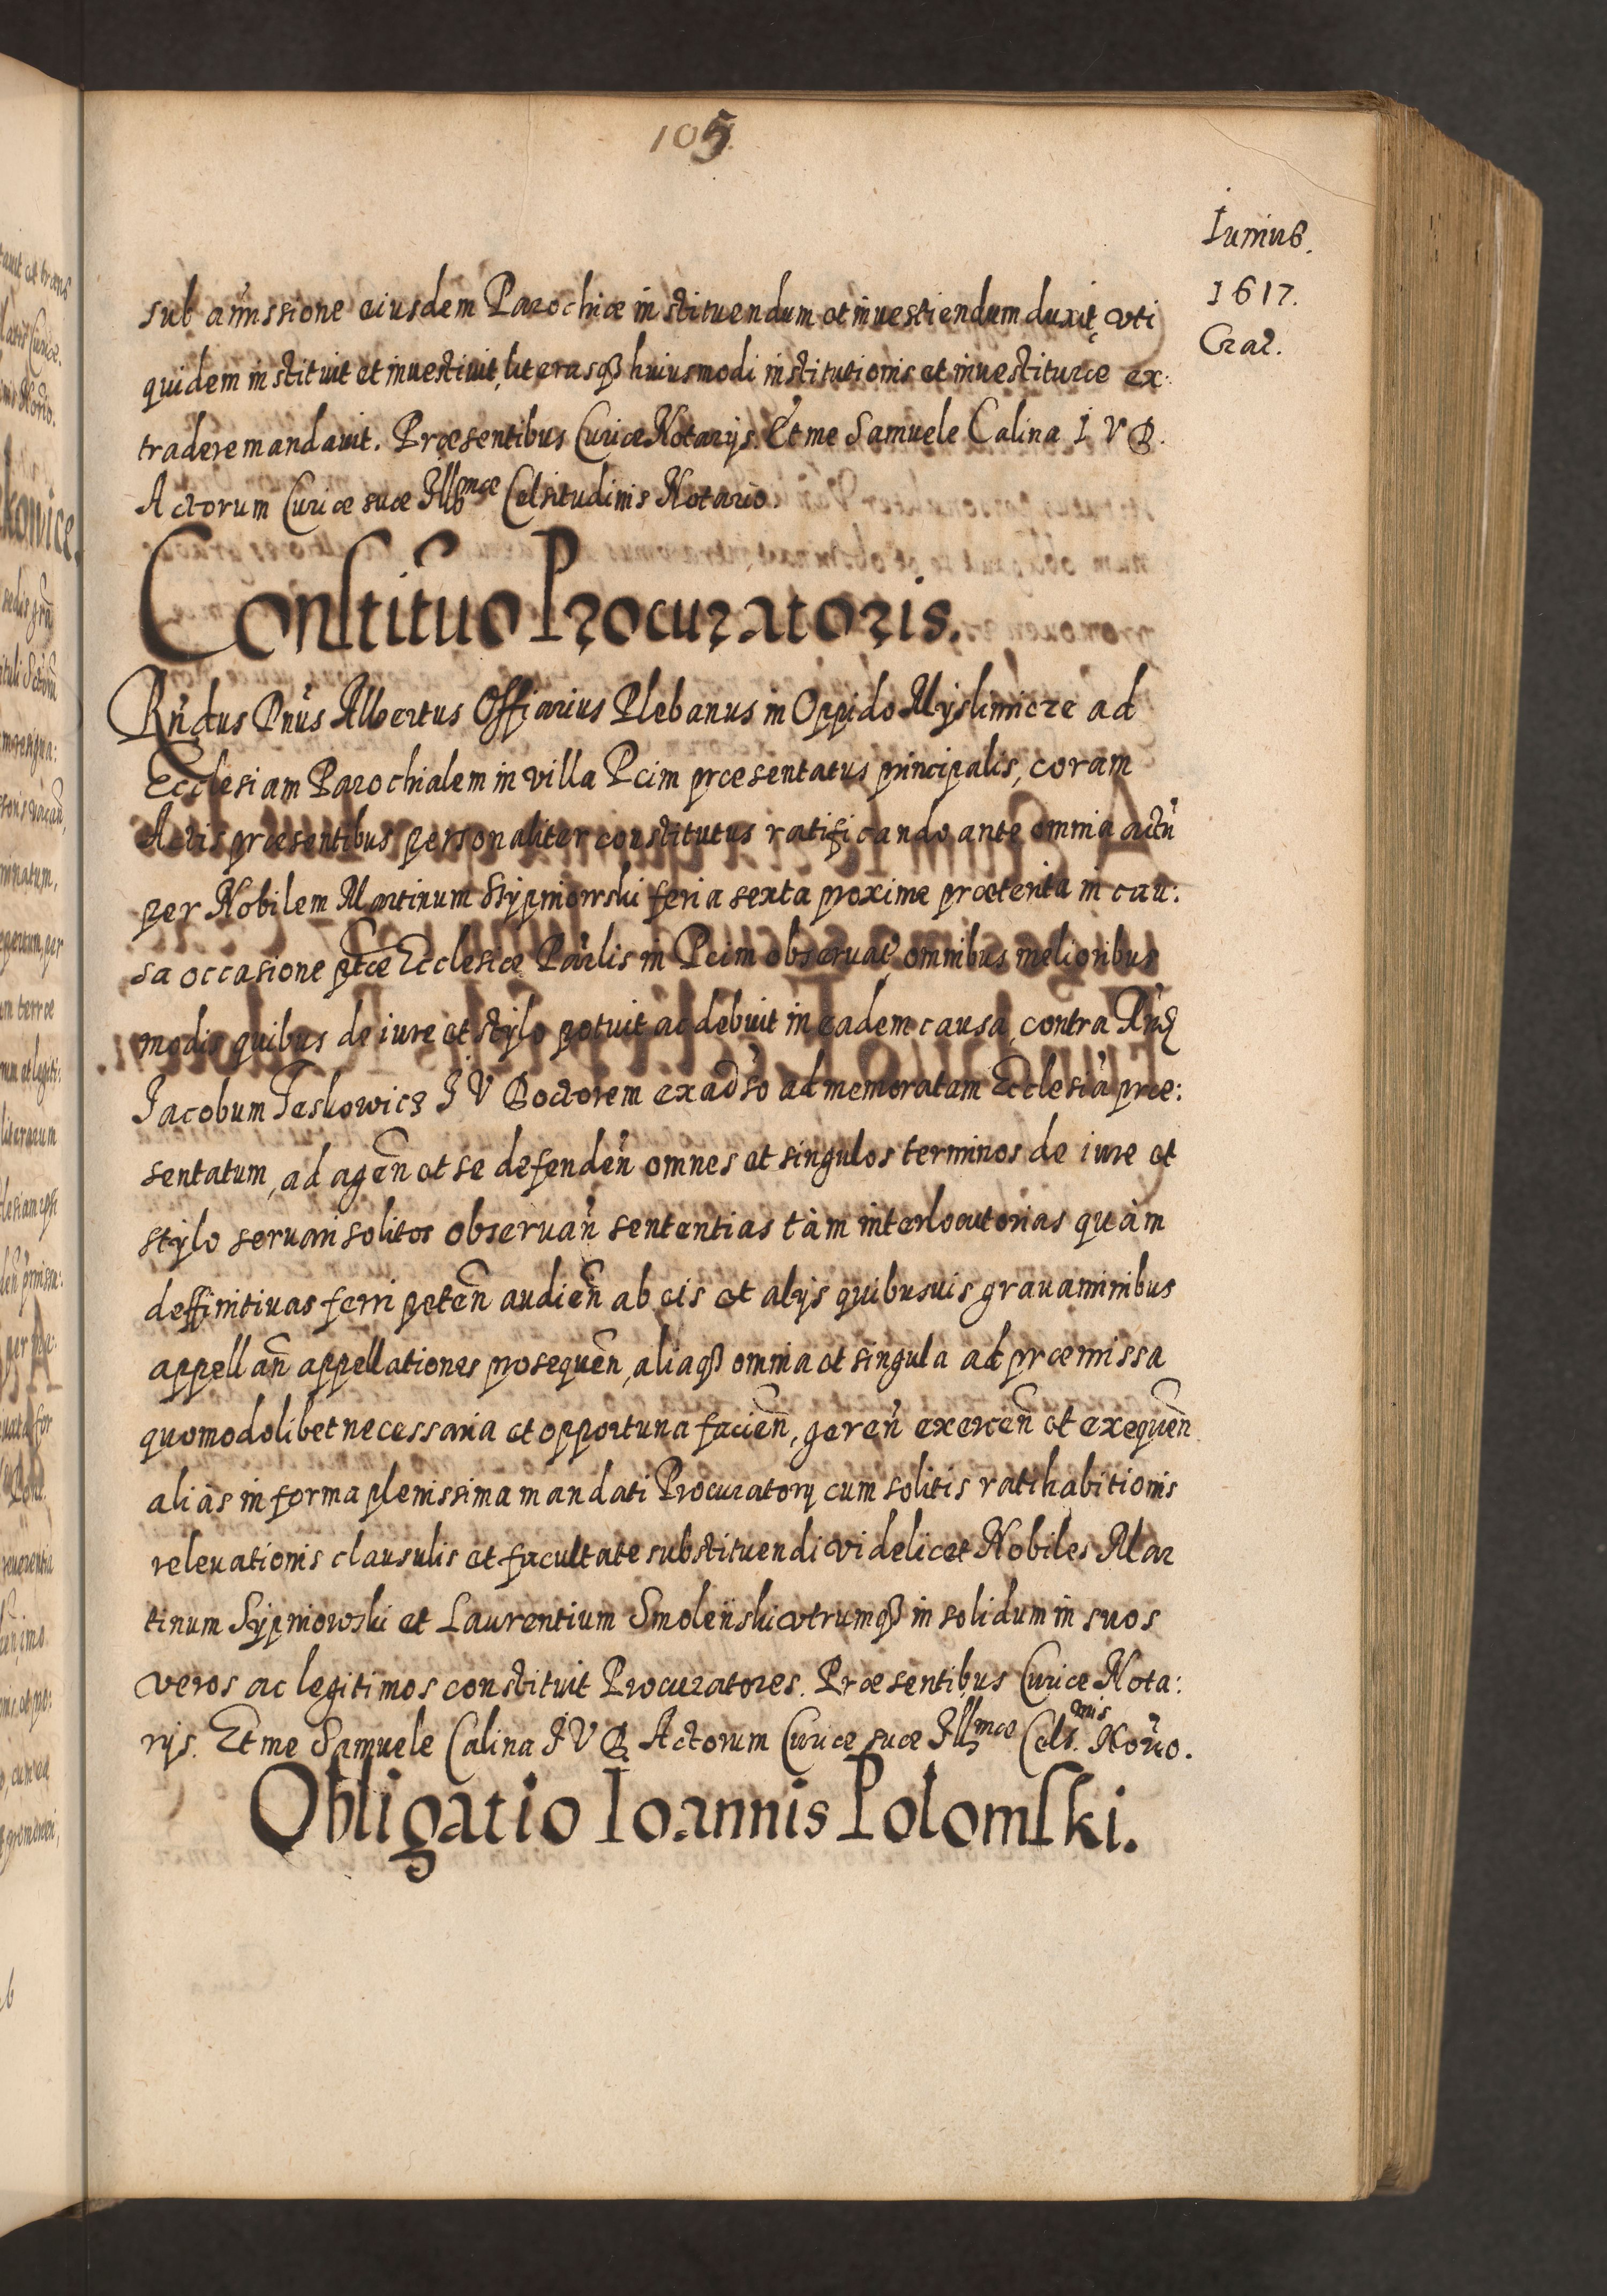 105.
Iunius.
1617.
Crac.
sub amissione eiusdem Parochiæ instituendum et inuestiendum duxit, vti
quidem instituit et inuestiuit, literasqß huiusmodi institutionis et inuestituræ ex:
tradere mandauit. Præsentibus Curiæ Notarijs. Et me Samuele Calina I V D.
Actorum Curiæ suæ Illmæ Celsitudinis Notario.
Constitúo Procuratoris.
Rńdus Dńus Albertus Offiarius Plebanus in Oppido Myslimicze ad
Ecclesiam Parochialem in villa Pcim præsentatus principalis, coram
Actis præsentibus personaliter constitutus ratificando ante omnia actú
per Nobilem Martinum Stypniowski feria sexta proxime præterita in cau:
sa occasione ptæ Ecclesiæ Pārlis in Pcim obseruať omnibus melioribus
modis quibus de iure et stylo potuit ac debuit in eadem causa, contra Rńd
Iacobum Jaskowicz I V Doctorem ex adṡo ad memoratam Ecclesiā præ:
sentatum, ad agen̄ et se defendeń omnes et singulos terminos de iure et
stylo seruari solitos obseruań sententias tàm interlocutorias quàm
deffinitiuas ferri peten̄ audien̄ ab eis et alijs quibusuis grauaminibus
appellan̄ appellationes prosequen̄, aliaqß omnia et singula ad præmissa
quomodolibet necessaria et opportuna facien̄, gereń exercen̄ et exequen̄
aliàs in forma plenissima mandati Procuratorij cum solitis ratihabitionis
releuationis clausulis et facultate substituendi videlicet Nobiles Mar
tinum Sypniowski et Laurentium Smoleński vtrumqß in solidum in suos
veros ac legitimos constituit Procuratores. Præsentibus Curiæ Nota:
rijs. Et me Samuele Calina I V D Actorum Curiæ suæ Illmæ Cels.nis Nořio.
Obligatio Ioannis Polomski.